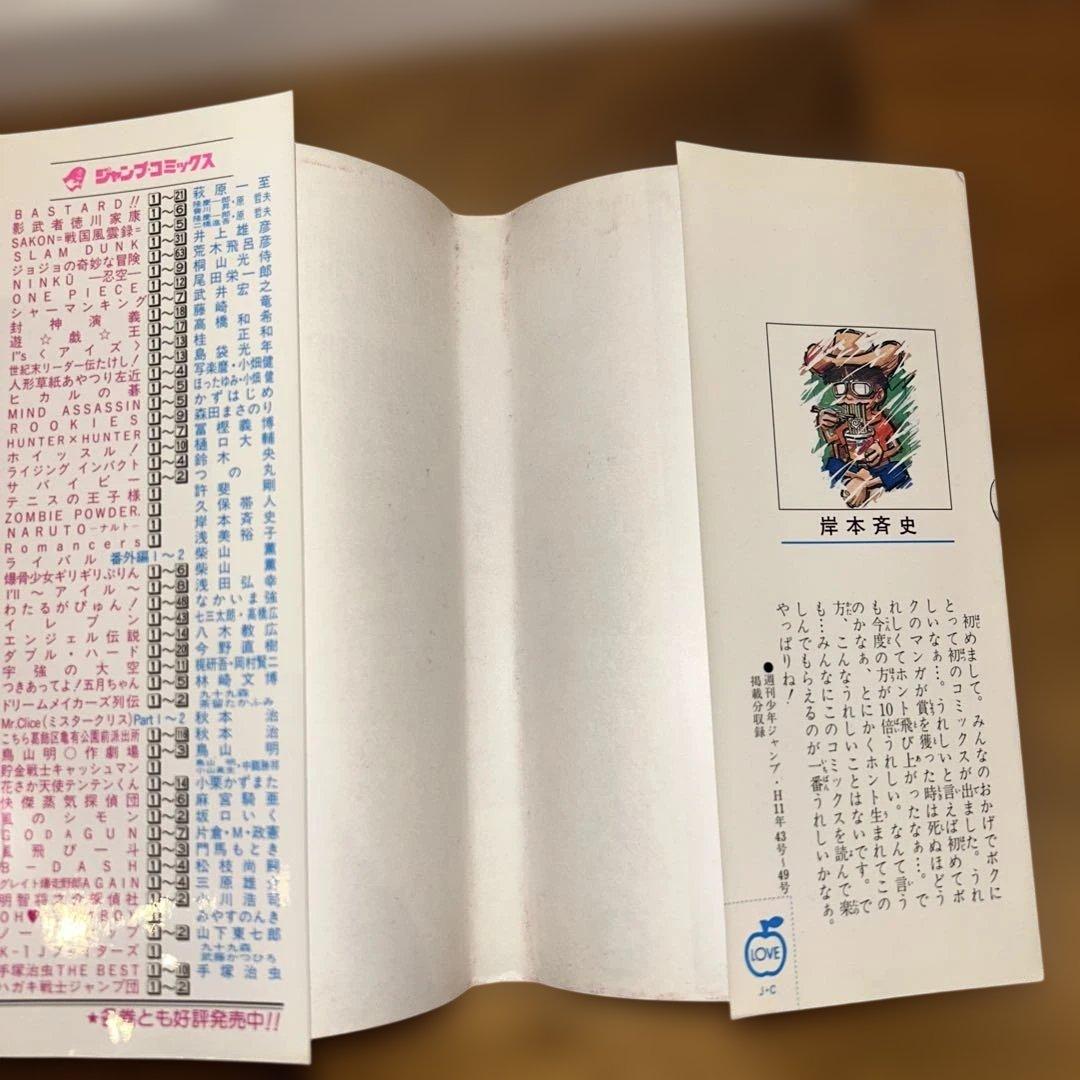 ジャンプ・コミックス
BASTARD!! 1〜21 萩原一至
影武者徳川家康 1〜6 隆慶一郎・會川昇・原哲夫
SAKON=戦国風雲録= 1〜5 隆慶一郎・二橋進吾・原哲夫
SLAM DUNK 1〜31 井上雄彦
ジョジョの奇妙な冒険 1〜63 荒木飛呂彦
NINKŪ —忍空— 1〜9 桐山光侍
ONE PIECE 1〜12 尾田栄一郎
シャーマンキング 1〜7 武井宏之
封神演義 1〜18 藤崎竜
遊☆戯☆王 1〜17 高橋和希
I"s〈アイズ〉 1〜13 桂正和
世紀末リーダー伝たけし! 1〜13 島袋光年
人形草紙あやつり左近 1〜4 写楽麿・小畑健
ヒカルの碁 1〜5 ほったゆみ・小畑健
MIND ASSASSIN 1〜5 かずはじめ
ROOKIES 1〜9 森田まさのり
HUNTER×HUNTER 1〜7 冨樫義博
ホイッスル! 1〜10 樋口大輔
ライジング インパクト 1〜4 鈴木央
サバイビー 1〜2 つの丸
テニスの王子様 1 許斐剛
ZOMBIE POWDER. 1 久保帯人
NARUTO—ナルト— 1 岸本斉史
Romancers 1 浅美裕子
ライバル 番外編1〜2 柴山薫
爆骨少女ギリギリぷりん 1〜6 柴山薫
I'll〜アイル〜 1〜8 浅田弘幸
わたるがぴゅん! 1〜48 なかいま強
イレブン 1〜43 七三太朗・高橋広
エンジェル伝説 1〜14 八木教広
ダブル・ハード 1〜20 今野直樹
宇強の大空 1〜11 梶研吾・岡村賢二
つきあってよ!五月ちゃん 1〜5 林崎文博
ドリームメイカーズ列伝 1〜2 九十九森 茶留たかふみ
Mr.Clice(ミスタークリス)Part 1〜2 秋本治
こちら葛飾区亀有公園前派出所 1〜118 秋本治
鳥山明○作劇場 1〜3 鳥山明
貯金戦士キャッシュマン 1 鳥山明・中鶴勝祥 小山高生
花さか天使テンテンくん 1〜14 小栗かずまた
快傑蒸気探偵団 1〜6 麻宮騎亜
風のシモン 1〜2 坂口いく
GODAGUN 1〜7 片倉・M・政憲
風飛び一斗 1〜3 門馬もとき
B-DASH 1〜4 松枝尚嗣
グレイト爆走野郎AGAIN 1〜4 三原雄
明智 探偵社 1〜2 小川浩司
OH♥ BOY みやすのんき
ノー 1〜2 山下東七郎
K-1 Jファイターズ 1 九十九森 武藤かつひろ
手塚治虫THE BEST 1〜10 手塚治虫
ハガキ戦士ジャンプ団 1〜2
★ 巻とも好評発売中!!
岸本斉史
初めまして。みんなのおかげでボクに
とって初のコミックスが出ました。うれ
しいなぁ…。うれしいと言えば初めてボ
クのマンガが賞を獲った時は死ぬほどう
れしくてホント飛び上がったなぁ…。で
も今度の方が10倍うれしい。なんて言う
のかなぁ、とにかくホント生まれてこの
方、こんなうれしいことはないです。で
も…みんなにこのコミックスを読んで楽
しんでもらえるのが一番うれしいかなぁ。
やっぱりね!
●週刊少年ジャンプ・H11年43号〜49号
掲載分収録
LOVE
J・C